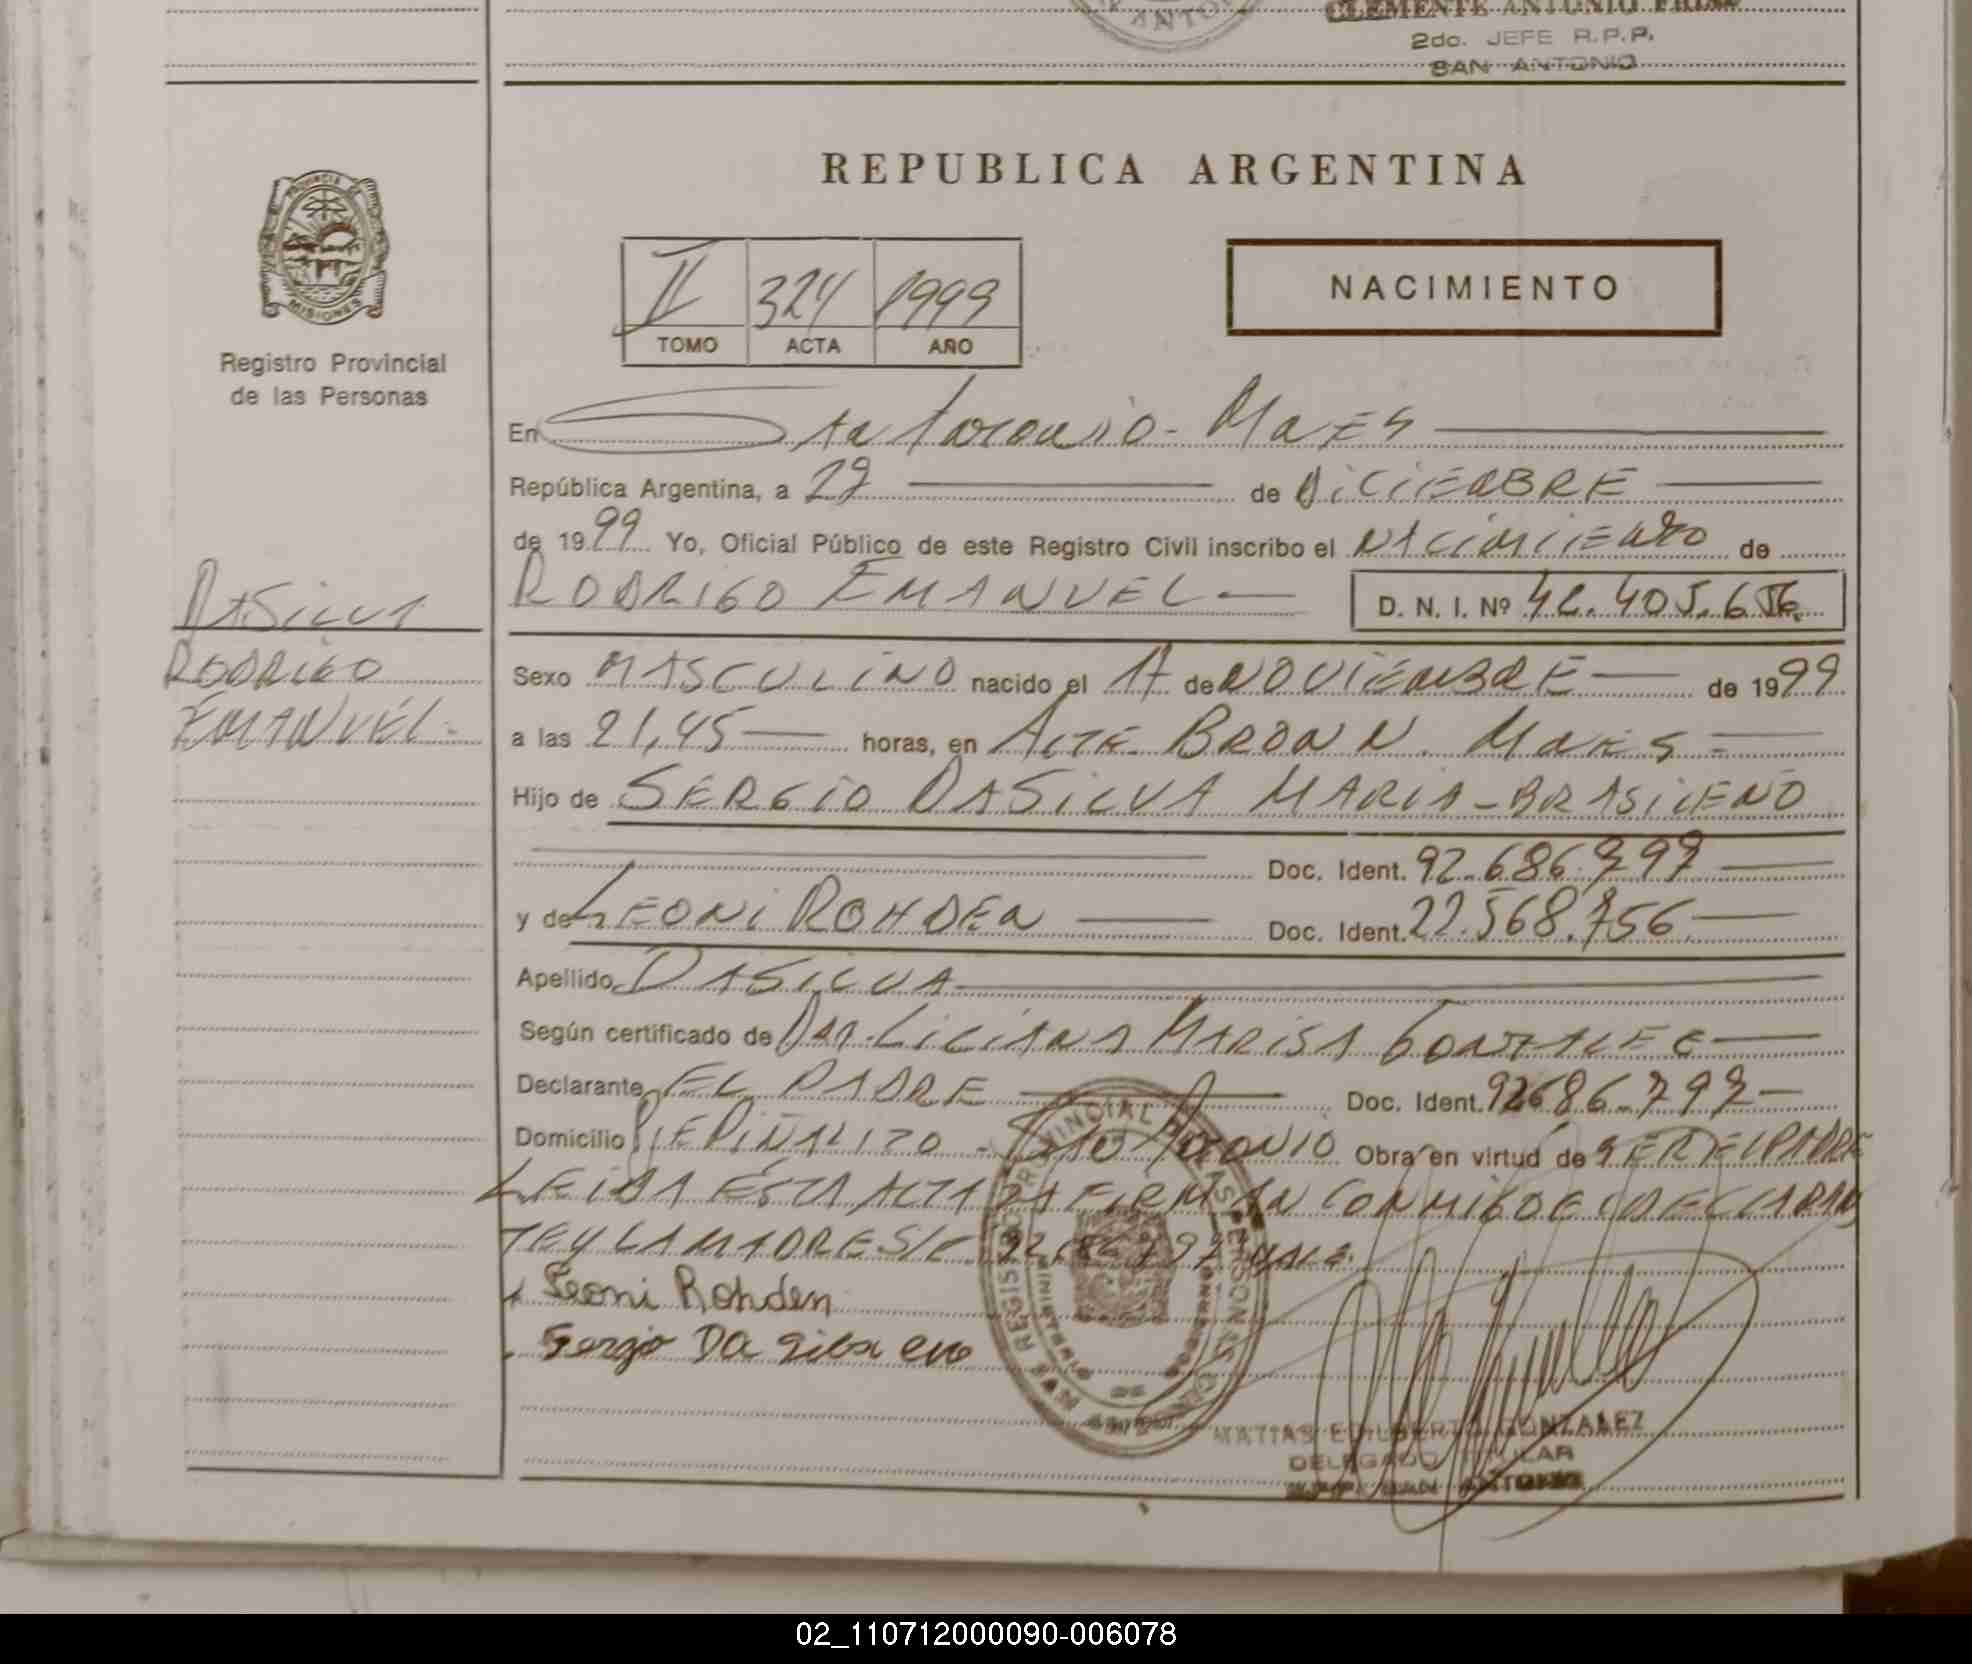 CLEMENTE ANTONIO
2do. JEFE R.P.P.
SAN ANTONIO
REPUBLICA ARGENTINA
PROVINCIA DE
MISIONES
Registro Provincial
de las Personas
II 324 1999
TOMO ACTA AÑO
NACIMIENTO
En San Antonio - Mnes
República Argentina, a 27 de DICIEMBRE
de 1999 Yo, Oficial Público de este Registro Civil inscribo el NACIMIENTO de
RODRIGO EMANUEL D. N. I. Nº 42.405.656
DASILVA
RODRIGO
EMANUEL
Sexo MASCULINO nacido el 17 de NOVIEMBRE de 1999
a las 21,45 horas, en ALTE. BROWN. Mnes
Hijo de SERGIO DASILVA MARIA - BRASILEÑO
Doc. Ident. 92.686.797
y de LEONI ROHDEN Doc. Ident. 22.568.756
Apellido DASILVA
Según certificado de Dra. LILIANA MARISA GONZALEZ
Declarante EL PADRE Doc. Ident. 92686.797
Domicilio PIEPIÑALITO - SAN ANTONIO Obra en virtud de SER EL PADRE
LEIDA ESTA ACTA LA FIRMAN CONMIGO EL DECLARAN
TE Y LA MADRE S/E 92.686.797 VALE
Leoni Rohden
Sergio DA Silva
MATIAS EDILBERTO GONZALEZ
DELEGADO TITULAR
SAN ANTONIO
02_110712000090-006078